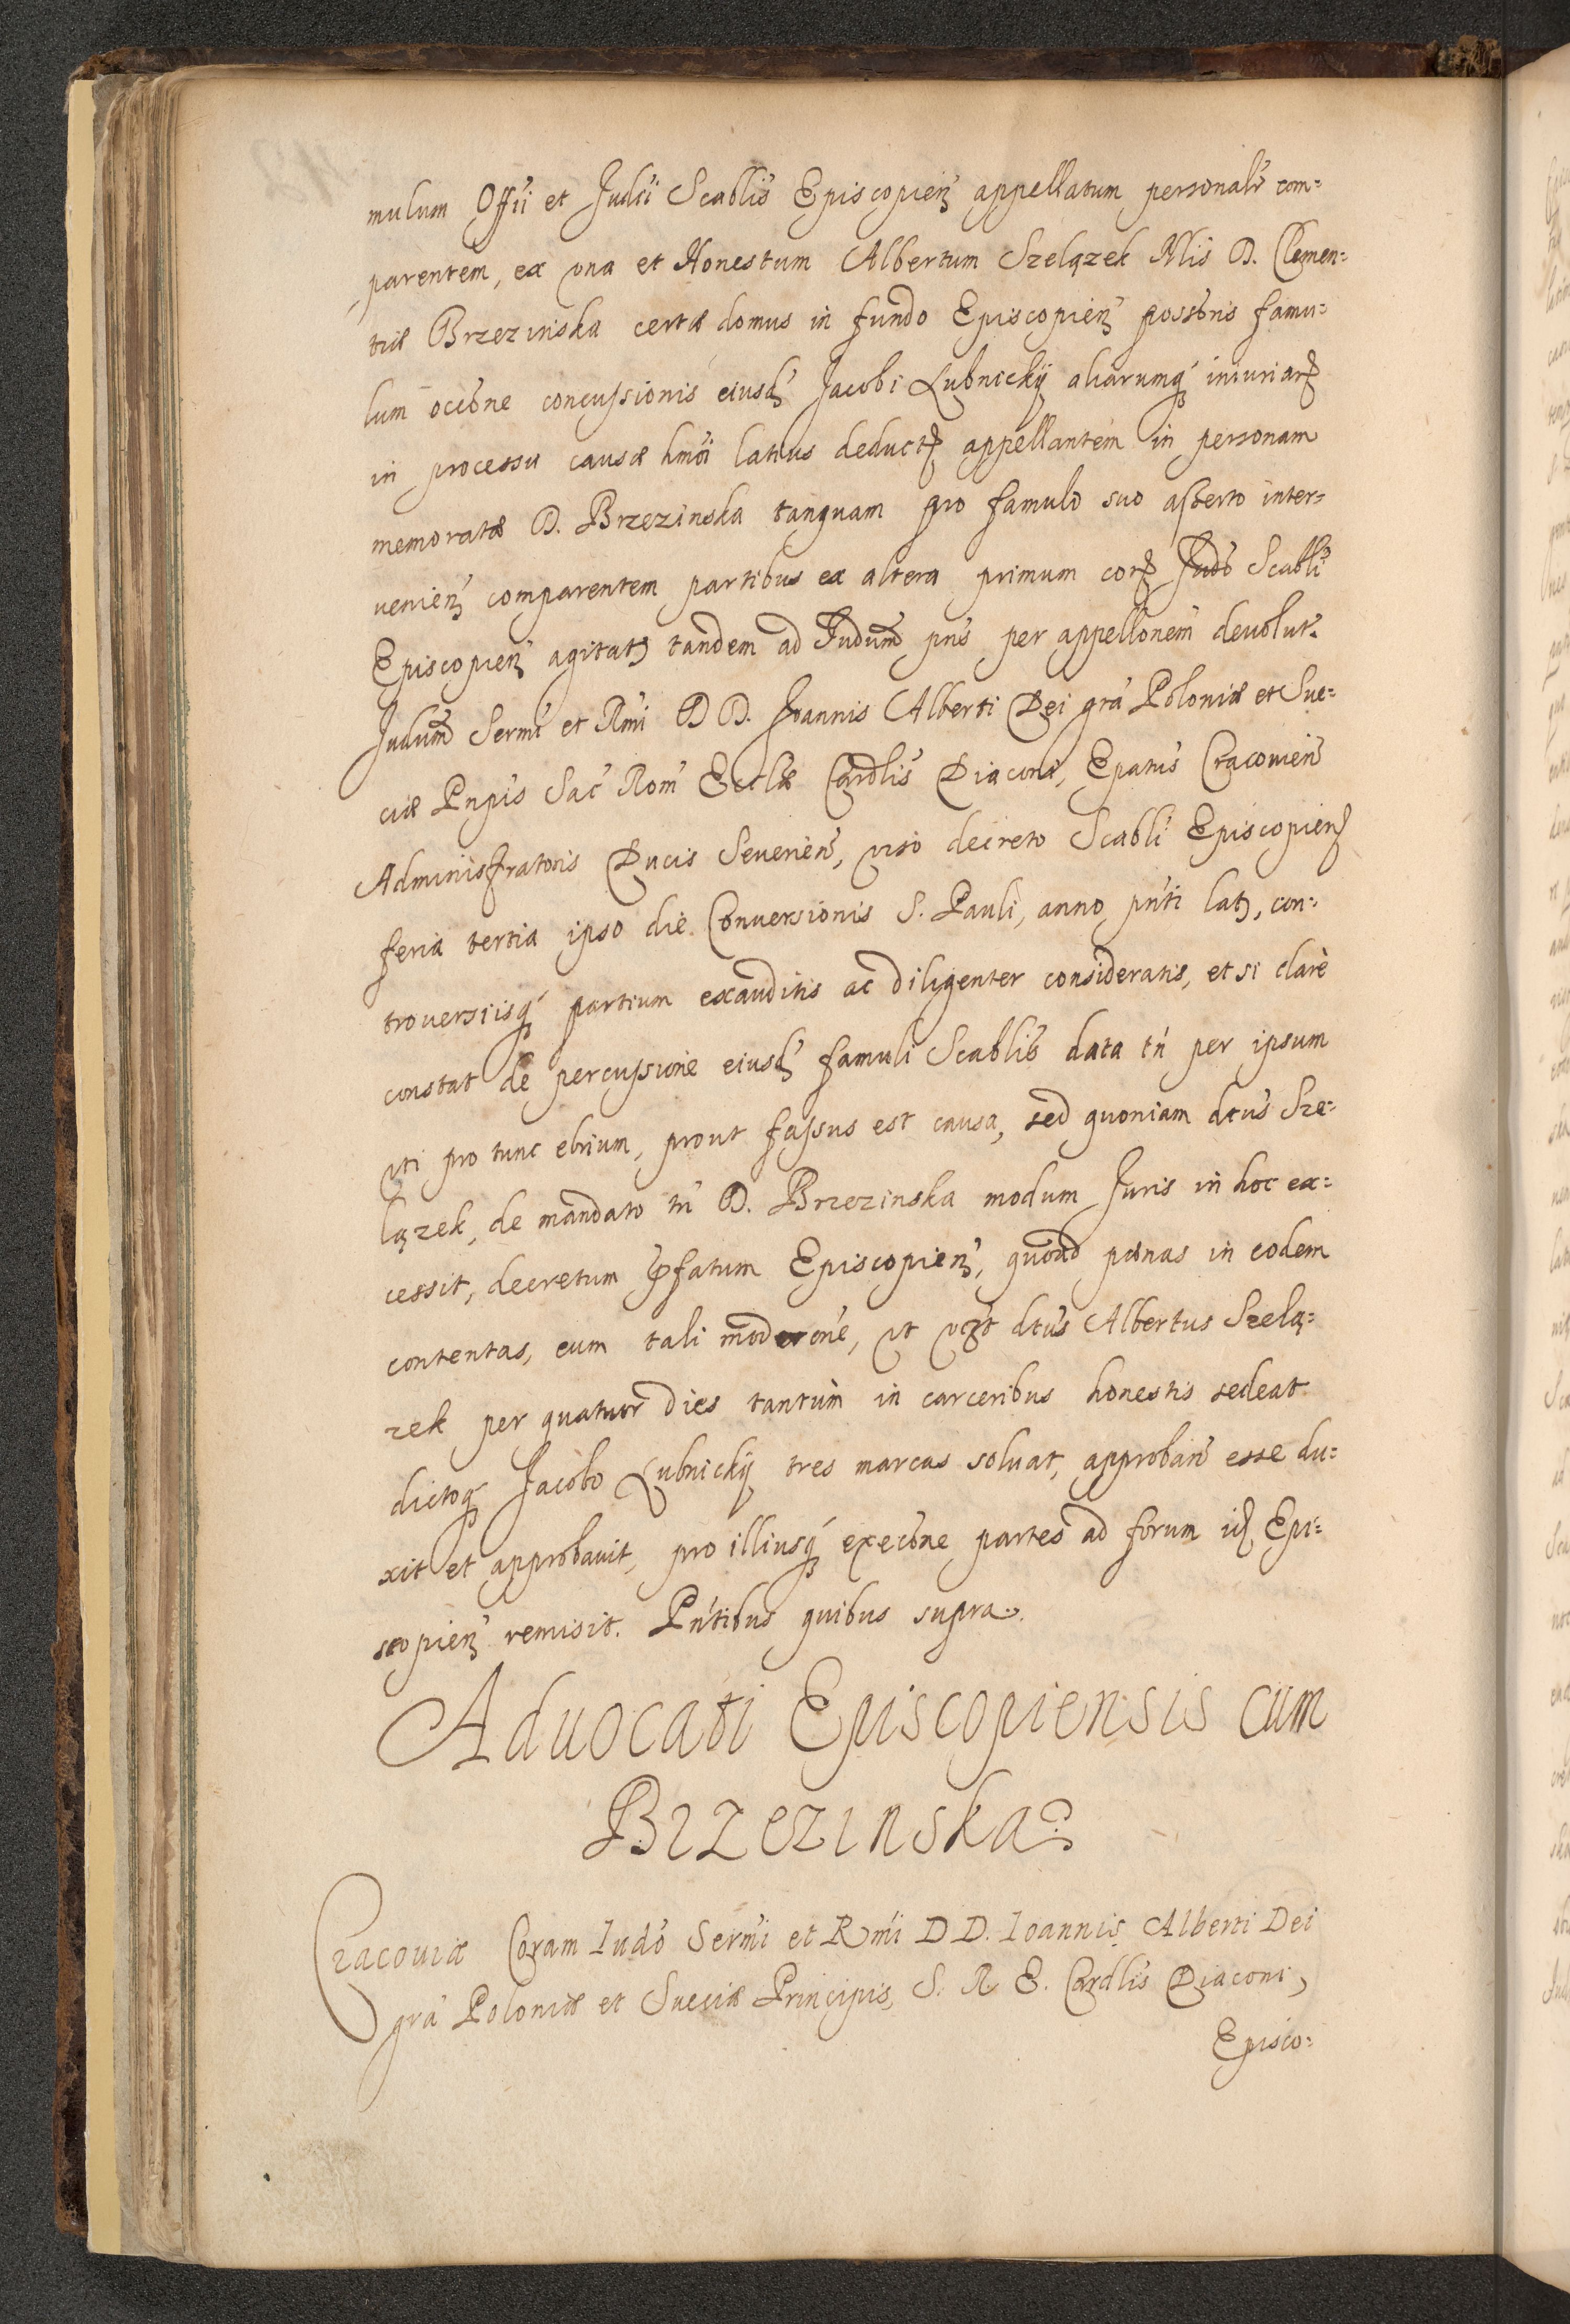 mulum Offii et Judii Scablis Episcopien appellatum personalr com=
parentem, ex una et Honestum Albertum Szelązek Nlis D. Clemen=
tiæ Brzezinska certæ domus in fundo Episcopien possoris famu=
lum occone concussionis eiusd Jacobi Lubnickÿ aliarumq iniuriar
in processu causæ hmoi latius deduct appellantem in personam
memoratæ D. Brzezinska tanquam pro famulo suo asserto inter=
uenien comparentem partibus ex altera primum cor Judo Scabli
Episcopien agitat tandem ad Judum pns per appellonem deuolut.
Judum Sermi et Rmi D D. Joannis Alberti Dei gra Poloniæ et Sue=
ciæ Pnpis Sac Rom Ecclæ Cardlis Diaconi, Epatus Cracouien
Administratoris Ducis Seuerien, viso decreto Scabli Episcopien
feria tertia ipso die Conuersionis S. Pauli, anno pnti lat, con=
trouersiisq partium exauditis ac diligenter consideratis, et si clare
constat de percussione eiusd famuli Scablis data tn per ipsum
vti pro tunc ebrium, prout fassus est causa, sed quoniam dtus Sze=
lązek, de mandato tn D. Brzezinska modum Juris in hoc ex=
cessit, decretum pfatum Episcopien, quoad pænas in eodem
contentas, cum tali moderone, vt vczt dtus Albertus Szelą=
zek per quatuor dies tantum in carceribus honestis sedeat
dictoq Jacobo Lubnickÿ tres marcas soluat, approban esse du=
xit et approbauit, pro illiusq execone partes ad forum id Epi=
scopien remisit. Pntibus quibus supra.
Aduocati Episcopiensis cum
Brzezinska
Cracouiæ Coram Iudo Sermi et Rmi D D. Ioannis Alberti Dei
gra Poloniæ et Sueciæ Principis, S. R. E. Cardlis Diaconi,
Episco=